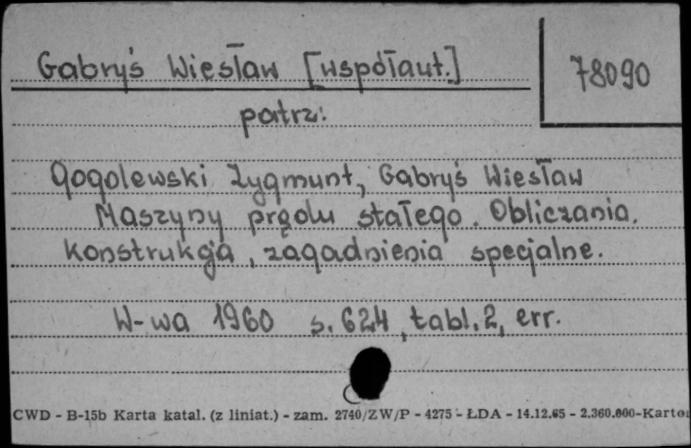 Gabryś Wiesław [współaut.]
78090
patrz:
Gogolewski Zygmunt, Gabryś Wiesław
Maszyny prądu stałego. Obliczania,
konstrukcja, zagadnienia specjalne.
W-wa 1960 s. 624, tabl. 2, err.
CWD - B-15b Karta katal. (z liniat.) - zam. 2740/ZW/P - 4275 - ŁDA - 14.12.65 - 2.360.000-Karto